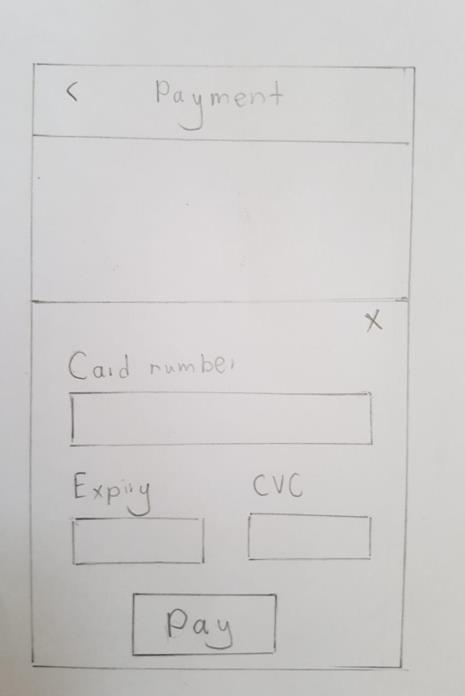 < Payment
X
Card number
Expiry CVC
Pay